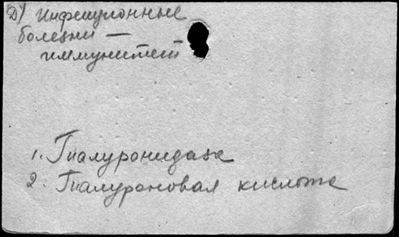 D) Инфекционные
болезни —
иммунитет
1. Гиалуронидаза
2. Гиалуроновая кислота